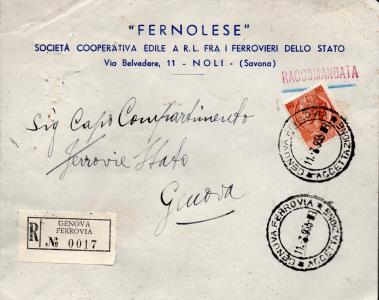 "FERNOLESE"
SOCIETÀ COOPERATIVA EDILE A R.L. FRA I FERROVIERI DELLO STATO
Via Belvedere, 11 - NOLI - (Savona)
RACCOMANDATA
Sig Capo Compartimento
Ferrovie Stato
Genova
GENOVA FERROVIA
ACCETTAZIONE
R
GENOVA
FERROVIA
No 0017
GENOVA FERROVIA
ACCETTAZIONE